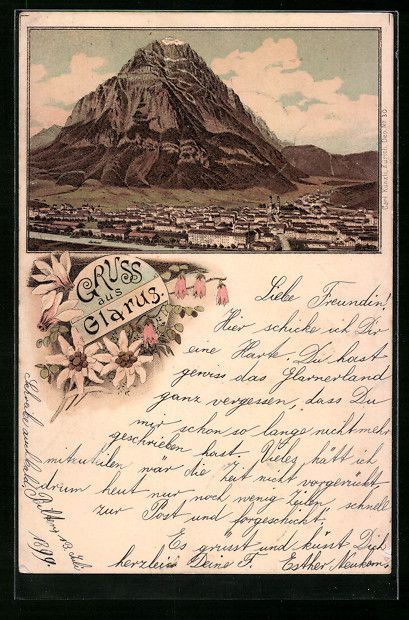 Carl Künzli, Zürich. Dep. No 30.
GRUSS
aus
Glarus.
Liebe Freundin!
Hier schicke ich Dir
eine Karte. Du hast
gewiss das Glarnerland
ganz vergessen, dass Du
mir schon so lange nicht mehr
geschrieben hast. Vieles hätt ich
mitzuteilen wär die Zeit nicht vorgerückt
drum heut nur noch wenig Zeilen, schnell
zur Post und fortgeschickt.
Es grüsst und küsst Dich
herzlich Deine F. Esther
Schreibe auch bald,
1899.